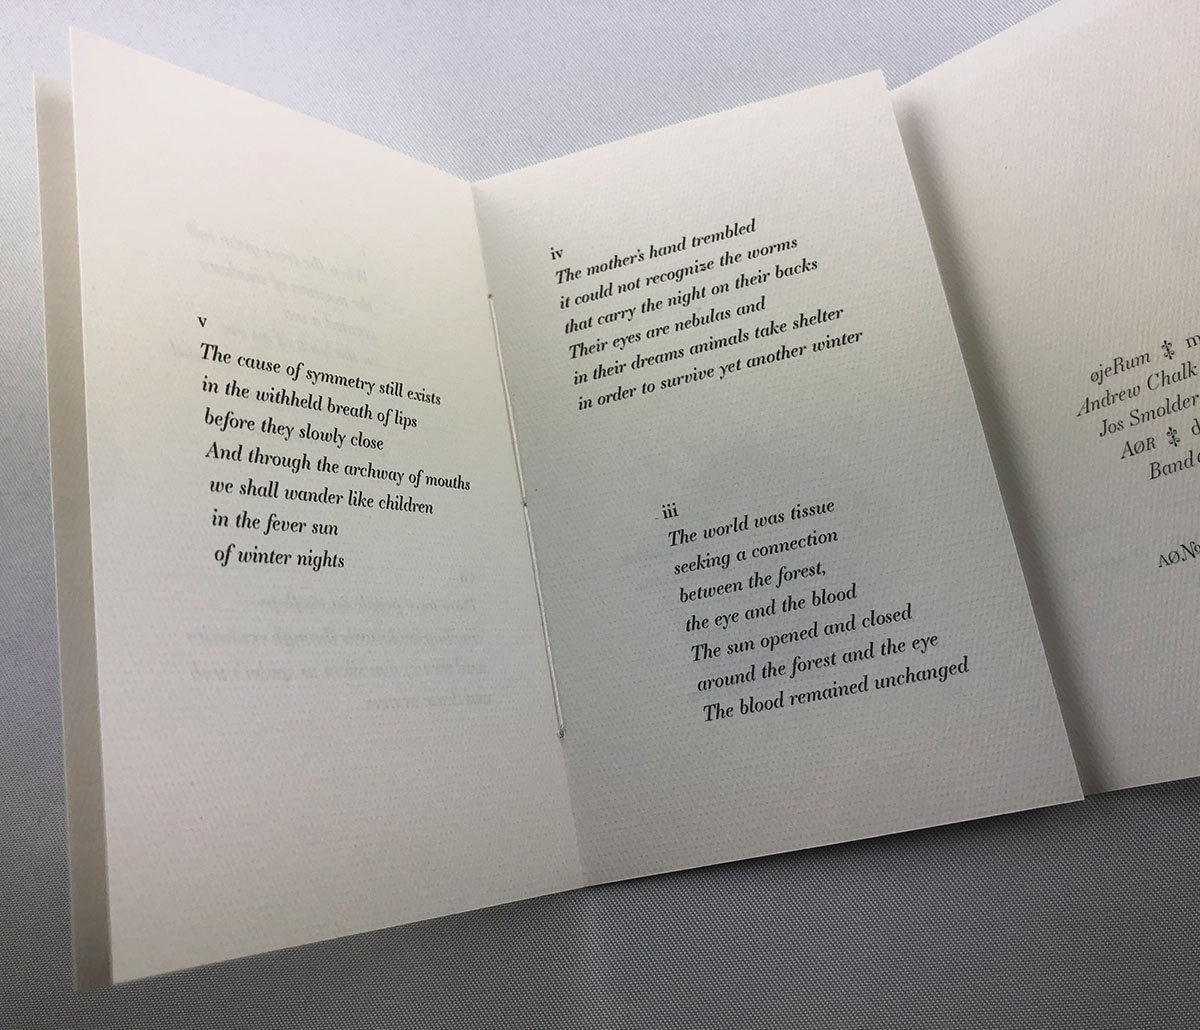 v
The cause of symmetry still exists
in the withheld breath of lips
before they slowly close
And through the archway of mouths
we shall wander like children
in the fever sun
of winter nights
iv
The mother's hand trembled
it could not recognize the worms
that carry the night on their backs
Their eyes are nebulas and
in their dreams animals take shelter
in order to survive yet another winter
iii
The world was tissue
seeking a connection
between the forest,
the eye and the blood
The sun opened and closed
around the forest and the eye
The blood remained unchanged
øjeRum
Andrew Chalk
Jos Smolder
AØR
Band
AØ.No